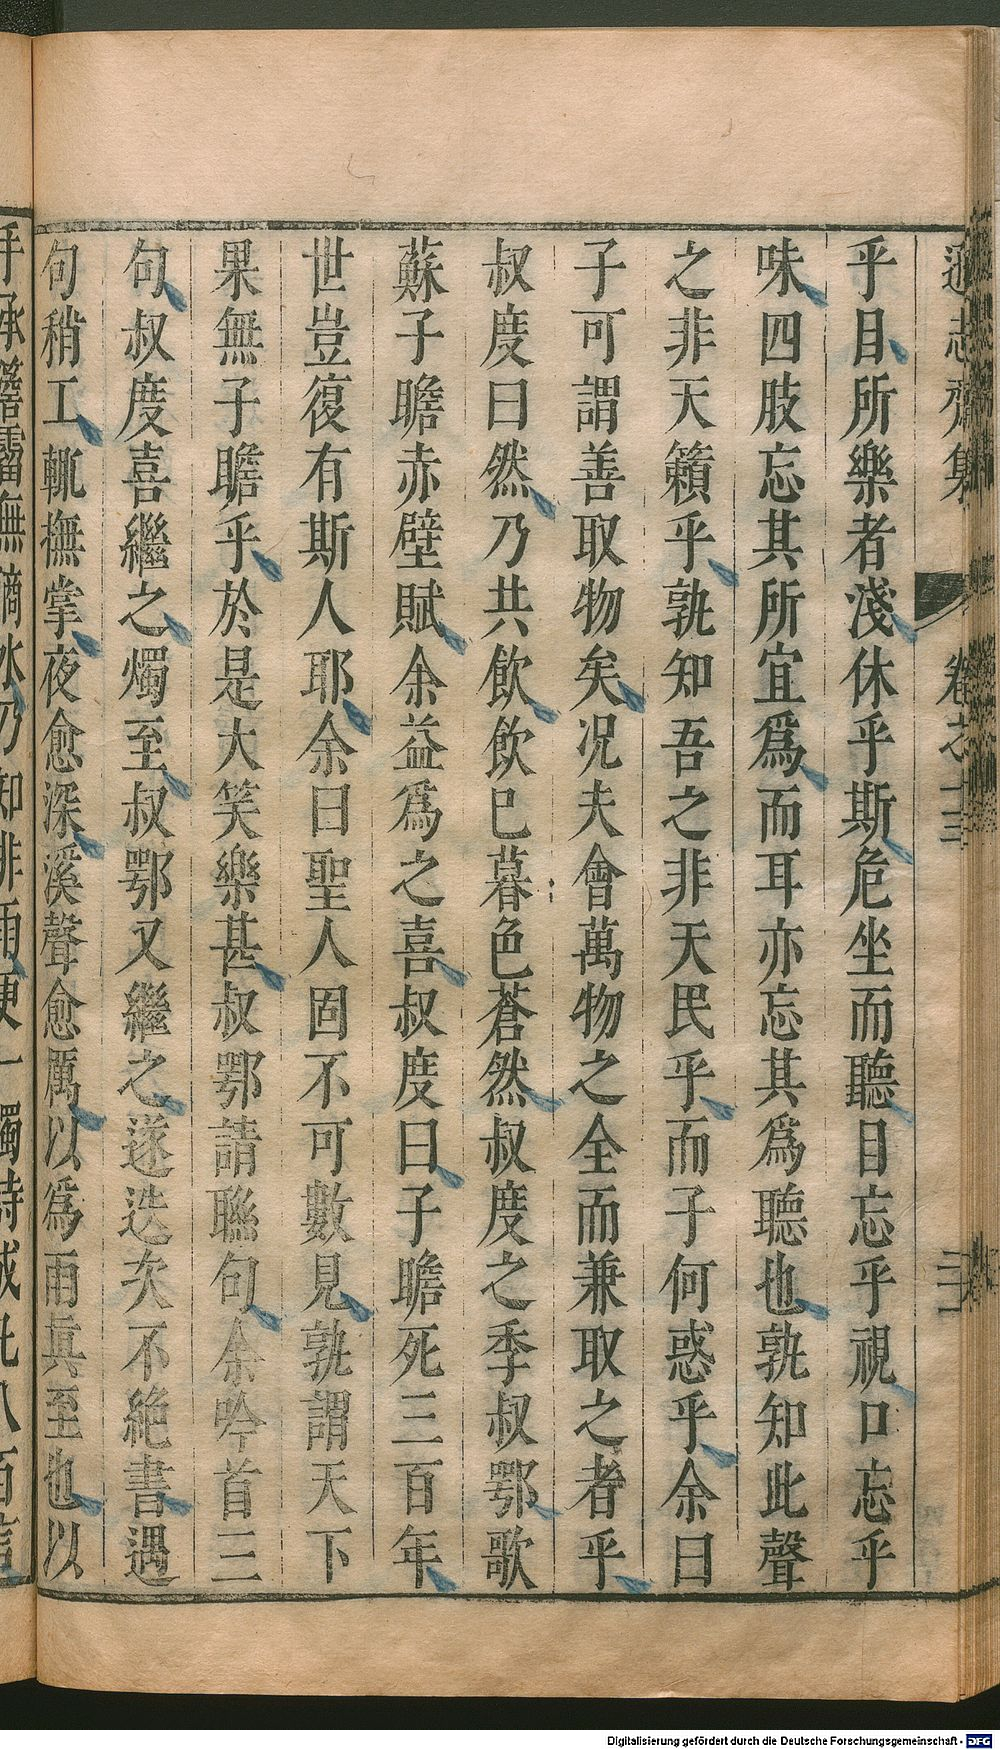 遜志齋集 卷之十三
乎目所樂者淺休乎斯危坐而聽目忘乎視口忘乎
味四肢忘其所宜爲而耳亦忘其爲聽也孰知此聲
之非天籟乎孰知吾之非天民乎而子何惑乎余曰
子可謂善取物矣况夫會萬物之全而兼取之者乎
叔度曰然乃共飲飲已暮色蒼然叔度之季叔鄂歌
蘇子瞻赤壁賦余益爲之喜叔度曰子瞻死三百年
世豈復有斯人耶余曰聖人固不可數見孰謂天下
果無子瞻乎於是大笑樂甚叔鄂請聮句余吟首三
句叔度喜繼之燭至叔鄂又繼之遂迭次不絶書遇
句稍工輒撫掌夜愈深溪聲愈厲以爲雨眞至也以
手承簷霤無滴水乃知非雨更一燭詩成凡八百言
Digitalisierung gefördert durch die Deutsche Forschungsgemeinschaft - DFG